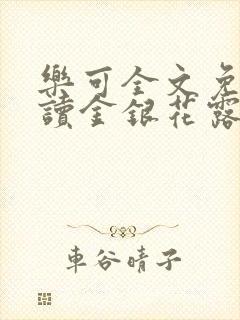 樂可全文免
讀金銀花露
車谷晴子